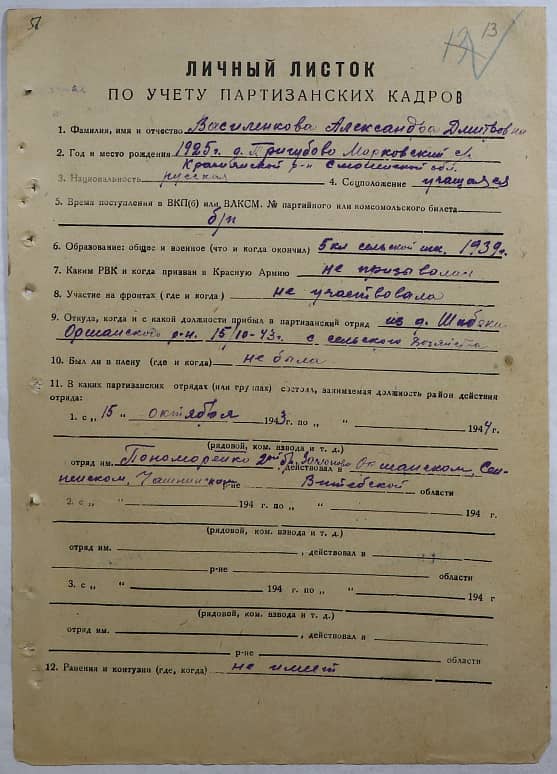 13
ЛИЧНЫЙ ЛИСТОК
ПО УЧЕТУ ПАРТИЗАНСКИХ КАДРОВ
1. Фамилия, имя и отчество Василенкова Александра Дмитровна
2. Год и место рождения 1925г. д. Пригубово Марковский с.
Краснянской р-н Смоленской обл.
3. Национальность русская 4. Соцположение учащаяся
5. Время поступления в ВКП(б) или ВЛКСМ. № партийного или комсомольского билета
б/п
6. Образование: общее и военное (что и когда окончил) 5 кл сельской шк. 1939г.
7. Каким РВК и когда призван в Красную Армию не призывалась
8. Участие на фронтах (где и когда) не участвовала
9. Откуда, когда и с какой должности прибыл в партизанский отряд из д.
Оршанского р-н. 15/10-43г. с сельского хозяйства
10. Был ли в плену (где и когда) не была
11. В каких партизанских отрядах (или группах) состоял, занимаемая должность район действия
отряда:
1. с „ 15 " октября 1943 г. по „ " 1944 г.
(рядовой, ком. взвода и т. д.)
отряд им. Пономаренко действовал в Оршанском, Сен-
ненском, Чашникском р-не Витебской области
2. с „ " 194 г. по „ " 194 г.
(рядовой, ком. взвода и т. д.)
отряд им. , действовал в
р-не области
3. с „ " 194 г. по „ " 194 г
(рядовой, ком. взвода и т. д.)
отряд им. , действовал в
р-не области
12. Ранения и контузии (где, когда) не имеет